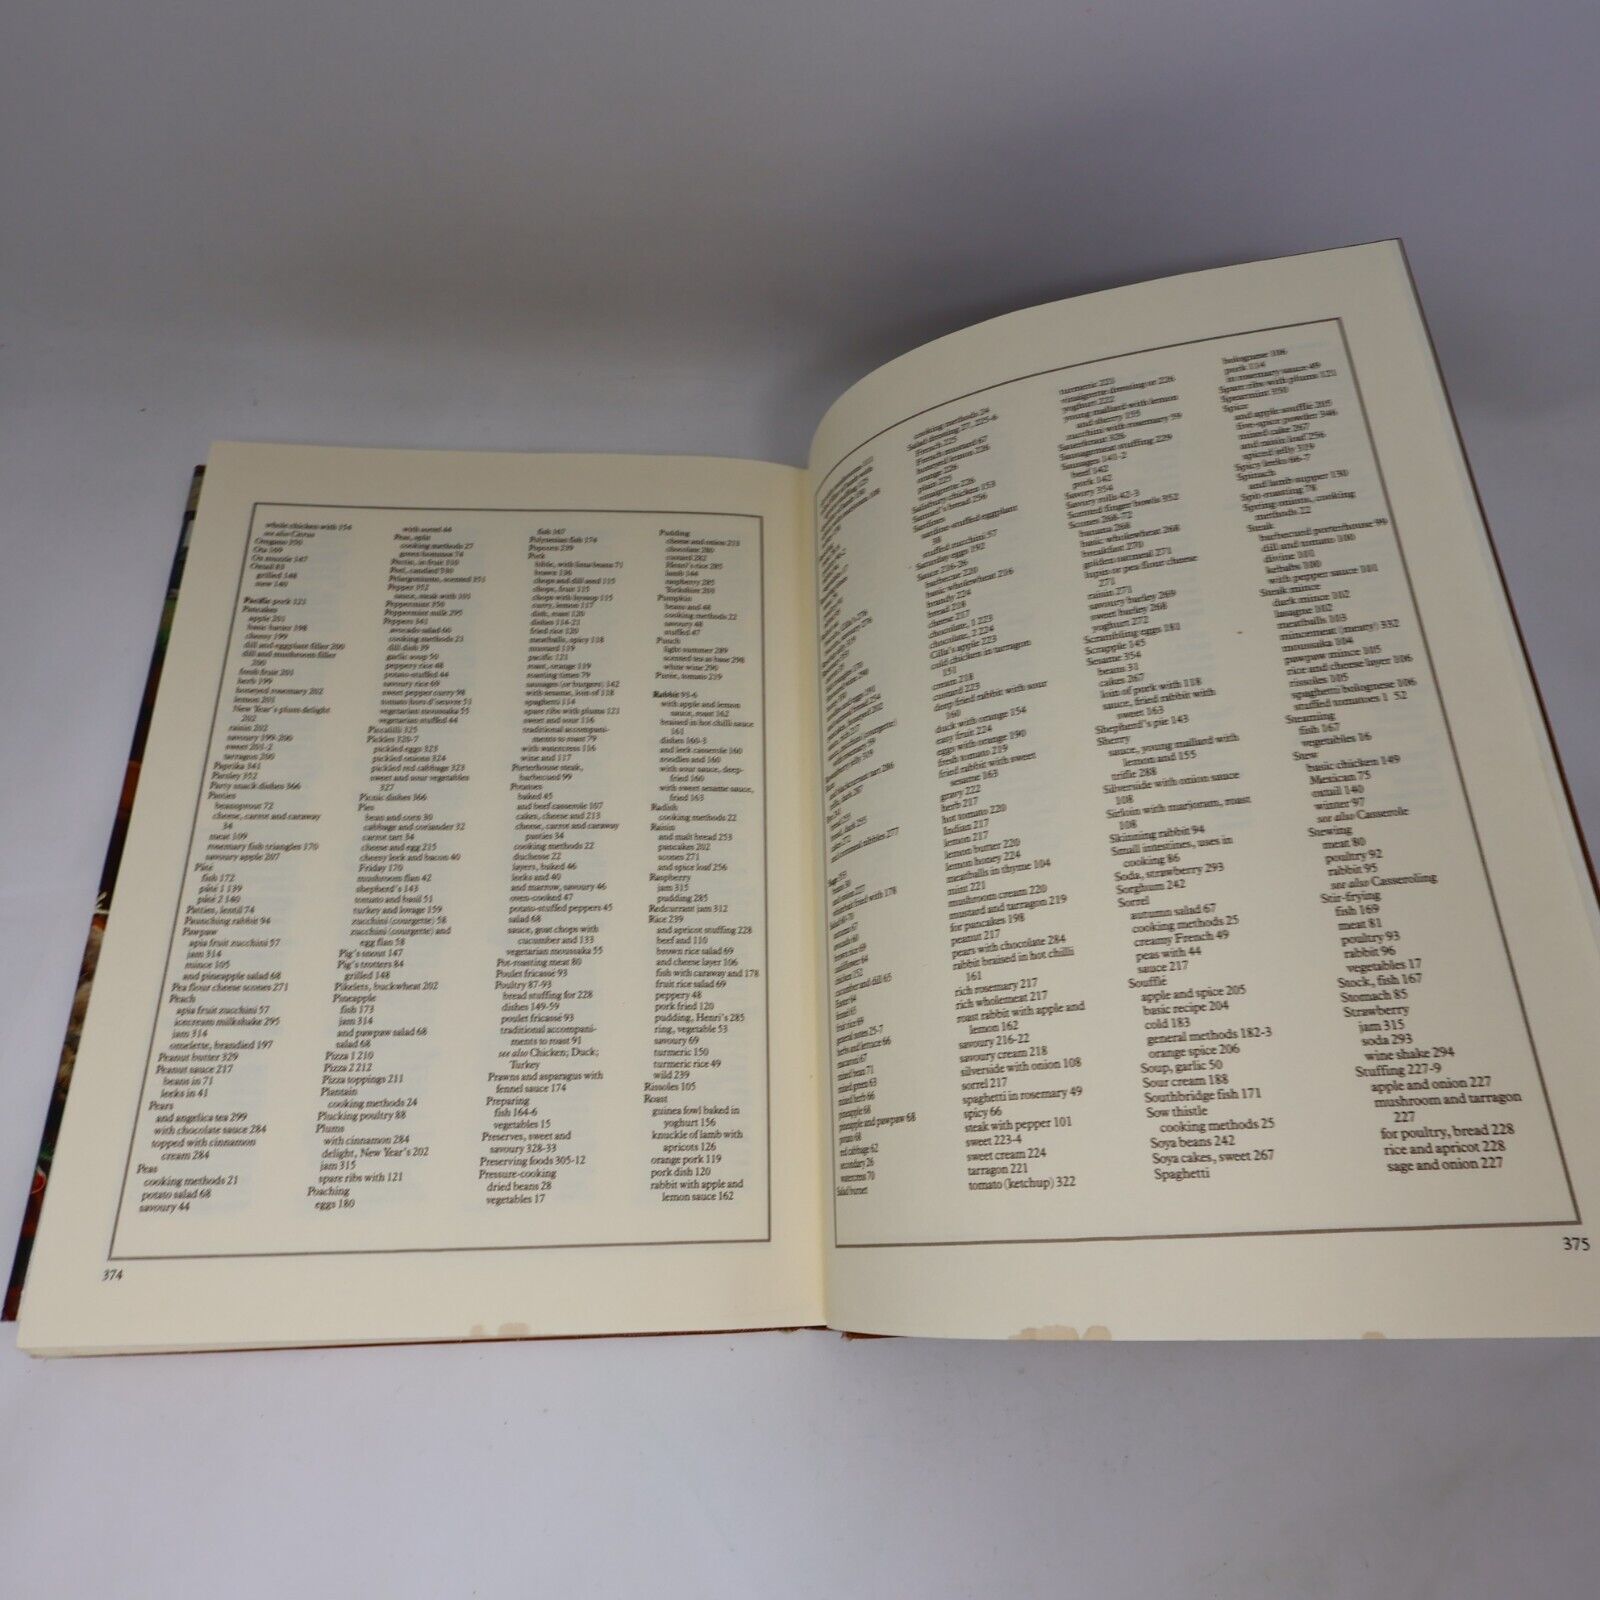 whole chicken with 154
see also Citrus
Oregano 350
Oxtail 85
grilled 148
stew 140
Pacific pork 121
Pancakes
apple 201
basic batter 198
cheesy 199
dill and eggplant filler 200
dill and mushroom filler
200
fresh fruit 201
herb 199
honeyed rosemary 202
lemon 201
New Year's plum delight
202
raisin 202
savoury 199-200
sweet 201-2
tarragon 200
Paprika 341
Parsley 352
Party snack dishes 366
Pasties
beansprout 72
cheese, carrot and caraway
34
meat 109
rosemary fish triangles 170
savoury apple 207
Pâté
fish 172
pâté 1 139
pâté 2 140
Patties, lentil 74
Paunching rabbit 94
Pawpaw
apia fruit zucchini 57
jam 314
mince 105
and pineapple salad 68
Pea flour cheese scones 271
Peach
apia fruit zucchini 57
icecream milkshake 295
jam 314
omelette, brandied 197
Peanut butter 329
Peanut sauce 217
beans in 71
leeks in 41
Pears
and angelica tea 299
with chocolate sauce 284
topped with cinnamon
cream 284
Peas
cooking methods 21
potato salad 68
savoury 44
with sorrel 44
Peas, split
cooking methods 27
green hommus 74
Pectin, in fruit 310
Peel, candied 330
Pelargoniums, scented 351
Pepper 351
sauce, steak with 101
Peppermint 350
Peppermint milk 295
Peppers 341
avocado salad 66
cooking methods 21
dill dish 39
garlic soup 50
peppery rice 48
potato-stuffed 44
savoury rice 69
sweet pepper curry 98
tomato hors d'oeuvre 51
vegetarian moussaka 55
vegetarian stuffed 44
Piccalilli 325
Pickles 320-7
pickled eggs 323
pickled onions 324
pickled red cabbage 323
sweet and sour vegetables
327
Picnic dishes 366
Pies
bean and corn 30
cabbage and coriander 32
carrot tart 34
cheese and egg 215
cheesy leek and bacon 40
Friday 170
mushroom flan 42
shepherd's 143
tomato and basil 51
turkey and lovage 159
zucchini (courgette) 58
zucchini (courgette) and
egg flan 58
Pig's snout 147
Pig's trotters 84
grilled 148
Pikelets, buckwheat 202
Pineapple
fish 173
jam 314
and pawpaw salad 68
salad 68
Pizza 1 210
Pizza 2 212
Pizza toppings 211
Plantain
cooking methods 24
Plucking poultry 88
Plums
with cinnamon 284
delight, New Year's 202
jam 315
spare ribs with 121
Poaching
eggs 180
fish 167
Polynesian fish 174
Popcorn 239
Pork
brawn 136
chops and dill seed 115
chops, fruit 115
chops with hyssop 115
curry, lemon 117
dish, roast 120
dishes 114-21
fried rice 120
meatballs, spicy 118
mustard 119
pacific 121
roast, orange 119
roasting times 79
sausages (or burgers) 142
with sesame, loin of 118
spaghetti 114
spare ribs with plums 121
sweet and sour 116
traditional accompani-
ments to roast 79
with watercress 116
wine and 117
Porterhouse steak,
barbecued 99
Potatoes
baked 45
and beef casserole 107
cakes, cheese and 213
cheese, carrot and caraway
pasties 34
cooking methods 22
duchesse 22
layers, baked 46
leeks and 40
and marrow, savoury 46
oven-cooked 47
potato-stuffed peppers 45
salad 68
sauce, goat chops with
cucumber and 133
vegetarian moussaka 55
Pot-roasting meat 80
Poulet fricassé 93
Poultry 87-93
bread stuffing for 228
dishes 149-59
poulet fricassé 93
traditional accompani-
ments to roast 91
see also Chicken; Duck;
Turkey
Prawns and asparagus with
fennel sauce 174
Preparing
fish 164-6
vegetables 15
Preserves, sweet and
savoury 328-33
Preserving foods 305-12
Pressure-cooking
dried beans 28
vegetables 17
Pudding
cheese and onion 213
chocolate 280
custard 282
Henri's rice 285
lamb 144
raspberry 285
Yorkshire 209
Pumpkin
beans and 48
cooking methods 22
savoury 48
stuffed 47
Punch
light summer 289
scented tea as base 298
white wine 290
Purée, tomato 219
Rabbit 93-6
with apple and lemon
sauce, roast 162
braised in hot chilli sauce
161
dishes 160-3
and leek casserole 160
noodles and 160
with sour sauce, deep-
fried 160
with sweet sesame sauce,
fried 163
Radish
cooking methods 22
Raisin
and malt bread 253
pancakes 202
scones 271
and spice loaf 256
Raspberry
jam 315
pudding 285
Redcurrant jam 312
Rice 239
and apricot stuffing 228
beef and 110
brown rice salad 69
and cheese layer 106
fish with caraway and 178
fruit rice salad 69
peppery 48
pork fried 120
pudding, Henri's 285
ring, vegetable 53
savoury 69
turmeric 150
turmeric rice 49
wild 239
Rissoles 105
Roast
guinea fowl baked in
yoghurt 156
knuckle of lamb with
apricots 126
orange pork 119
pork dish 120
rabbit with apple and
lemon sauce 162
374
Sage 353
Salad 60-70
autumn 67
avocado 66
brown rice 69
cauliflower 64
chicken 152
cucumber and dill 65
Easter 64
fennel 65
fruit rice 69
general notes 25-7
herbs and lettuce 66
macaroni 67
mixed bean 71
mixed green 63
mixed herb 66
pineapple 68
pineapple and pawpaw 68
potato 68
red cabbage 62
secondary 26
watercress 70
Salad burnet
cooking methods 24
Salad dressing 27, 225-6
French 225
French mustard 67
honeyed lemon 226
orange 226
plain 225
vinaigrette 226
Salisbury chicken 153
Samuel's bread 256
Sardines
sardine-stuffed eggplant
38
stuffed zucchini 57
Saturday eggs 192
Sauce 216-26
barbecue 220
basic wholewheat 216
brandy 224
bread 218
cheese 217
chocolate, 1 223
chocolate, 2 224
Cilla's apple 223
cold chicken in tarragon
151
cream 218
custard 223
deep fried rabbit with sour
160
duck with orange 154
easy fruit 224
eggs with orange 190
fresh tomato 219
fried rabbit with sweet
sesame 163
gravy 222
herb 217
hot tomato 220
Indian 217
lemon 217
lemon butter 220
lemon honey 224
meatballs in thyme 104
mint 221
mushroom cream 220
mustard and tarragon 219
for pancakes 198
peanut 217
pears with chocolate 284
rabbit braised in hot chilli
161
rich rosemary 217
rich wholemeat 217
roast rabbit with apple and
lemon 162
savoury 216-22
savoury cream 218
silverside with onion 108
sorrel 217
spaghetti in rosemary 49
spicy 66
steak with pepper 101
sweet 223-4
sweet cream 224
tarragon 221
tomato (ketchup) 322
turmeric 221
vinaigrette dressing or 226
yoghurt 222
young mallard with lemon
and sherry 155
zucchini with rosemary 59
Sauerkraut 326
Sausagemeat stuffing 229
Sausages 141-2
beef 142
pork 142
Savory 354
Savory rolls 42-3
Scented finger bowls 352
Scones 268-72
banana 268
basic wholewheat 268
breakfast 270
golden oatmeal 271
lupin or pea flour cheese
271
raisin 271
savoury barley 269
sweet barley 268
yoghurt 272
Scrambling eggs 181
Scrapple 145
Sesame 354
beans 31
cakes 267
loin of pork with 118
sauce, fried rabbit with
sweet 163
Shepherd's pie 143
Sherry
sauce, young mallard with
lemon and 155
trifle 288
Silverside with onion sauce
108
Sirloin with marjoram, roast
108
Skinning rabbit 94
Small intestines, uses in
cooking 86
Soda, strawberry 293
Sorghum 242
Sorrel
autumn salad 67
cooking methods 25
creamy French 49
peas with 44
sauce 217
Soufflé
apple and spice 205
basic recipe 204
cold 183
general methods 182-3
orange spice 206
Soup, garlic 50
Sour cream 188
Southbridge fish 171
Sow thistle
cooking methods 25
Soya beans 242
Soya cakes, sweet 267
Spaghetti
bolognese 106
pork 114
in rosemary sauce 49
Spare ribs with plums 121
Spearmint 350
Spice
and apple soufflé 205
five-spice powder 346
mixed cake 267
and raisin loaf 256
spiced jelly 319
Spicy leeks 66-7
Spinach
and lamb supper 130
Spit-roasting 78
Spring onions, cooking
methods 22
Steak
barbecued porterhouse 99
dill and tomato 100
divine 101
kebabs 100
with pepper sauce 101
Steak mince
dark mince 102
lasagne 102
meatballs 103
mincemeat (meaty) 332
moussaka 104
pawpaw mince 105
rice and cheese layer 106
rissoles 105
spaghetti bolognese 106
stuffed tomatoes 1 52
Steaming
fish 167
vegetables 16
Stew
basic chicken 149
Mexican 75
oxtail 140
winter 97
see also Casserole
Stewing
meat 80
poultry 92
rabbit 95
see also Casseroling
Stir-frying
fish 169
meat 81
poultry 93
rabbit 96
vegetables 17
Stock, fish 167
Stomach 85
Strawberry
jam 315
soda 293
wine shake 294
Stuffing 227-9
apple and onion 227
mushroom and tarragon
227
for poultry, bread 228
rice and apricot 228
sage and onion 227
375